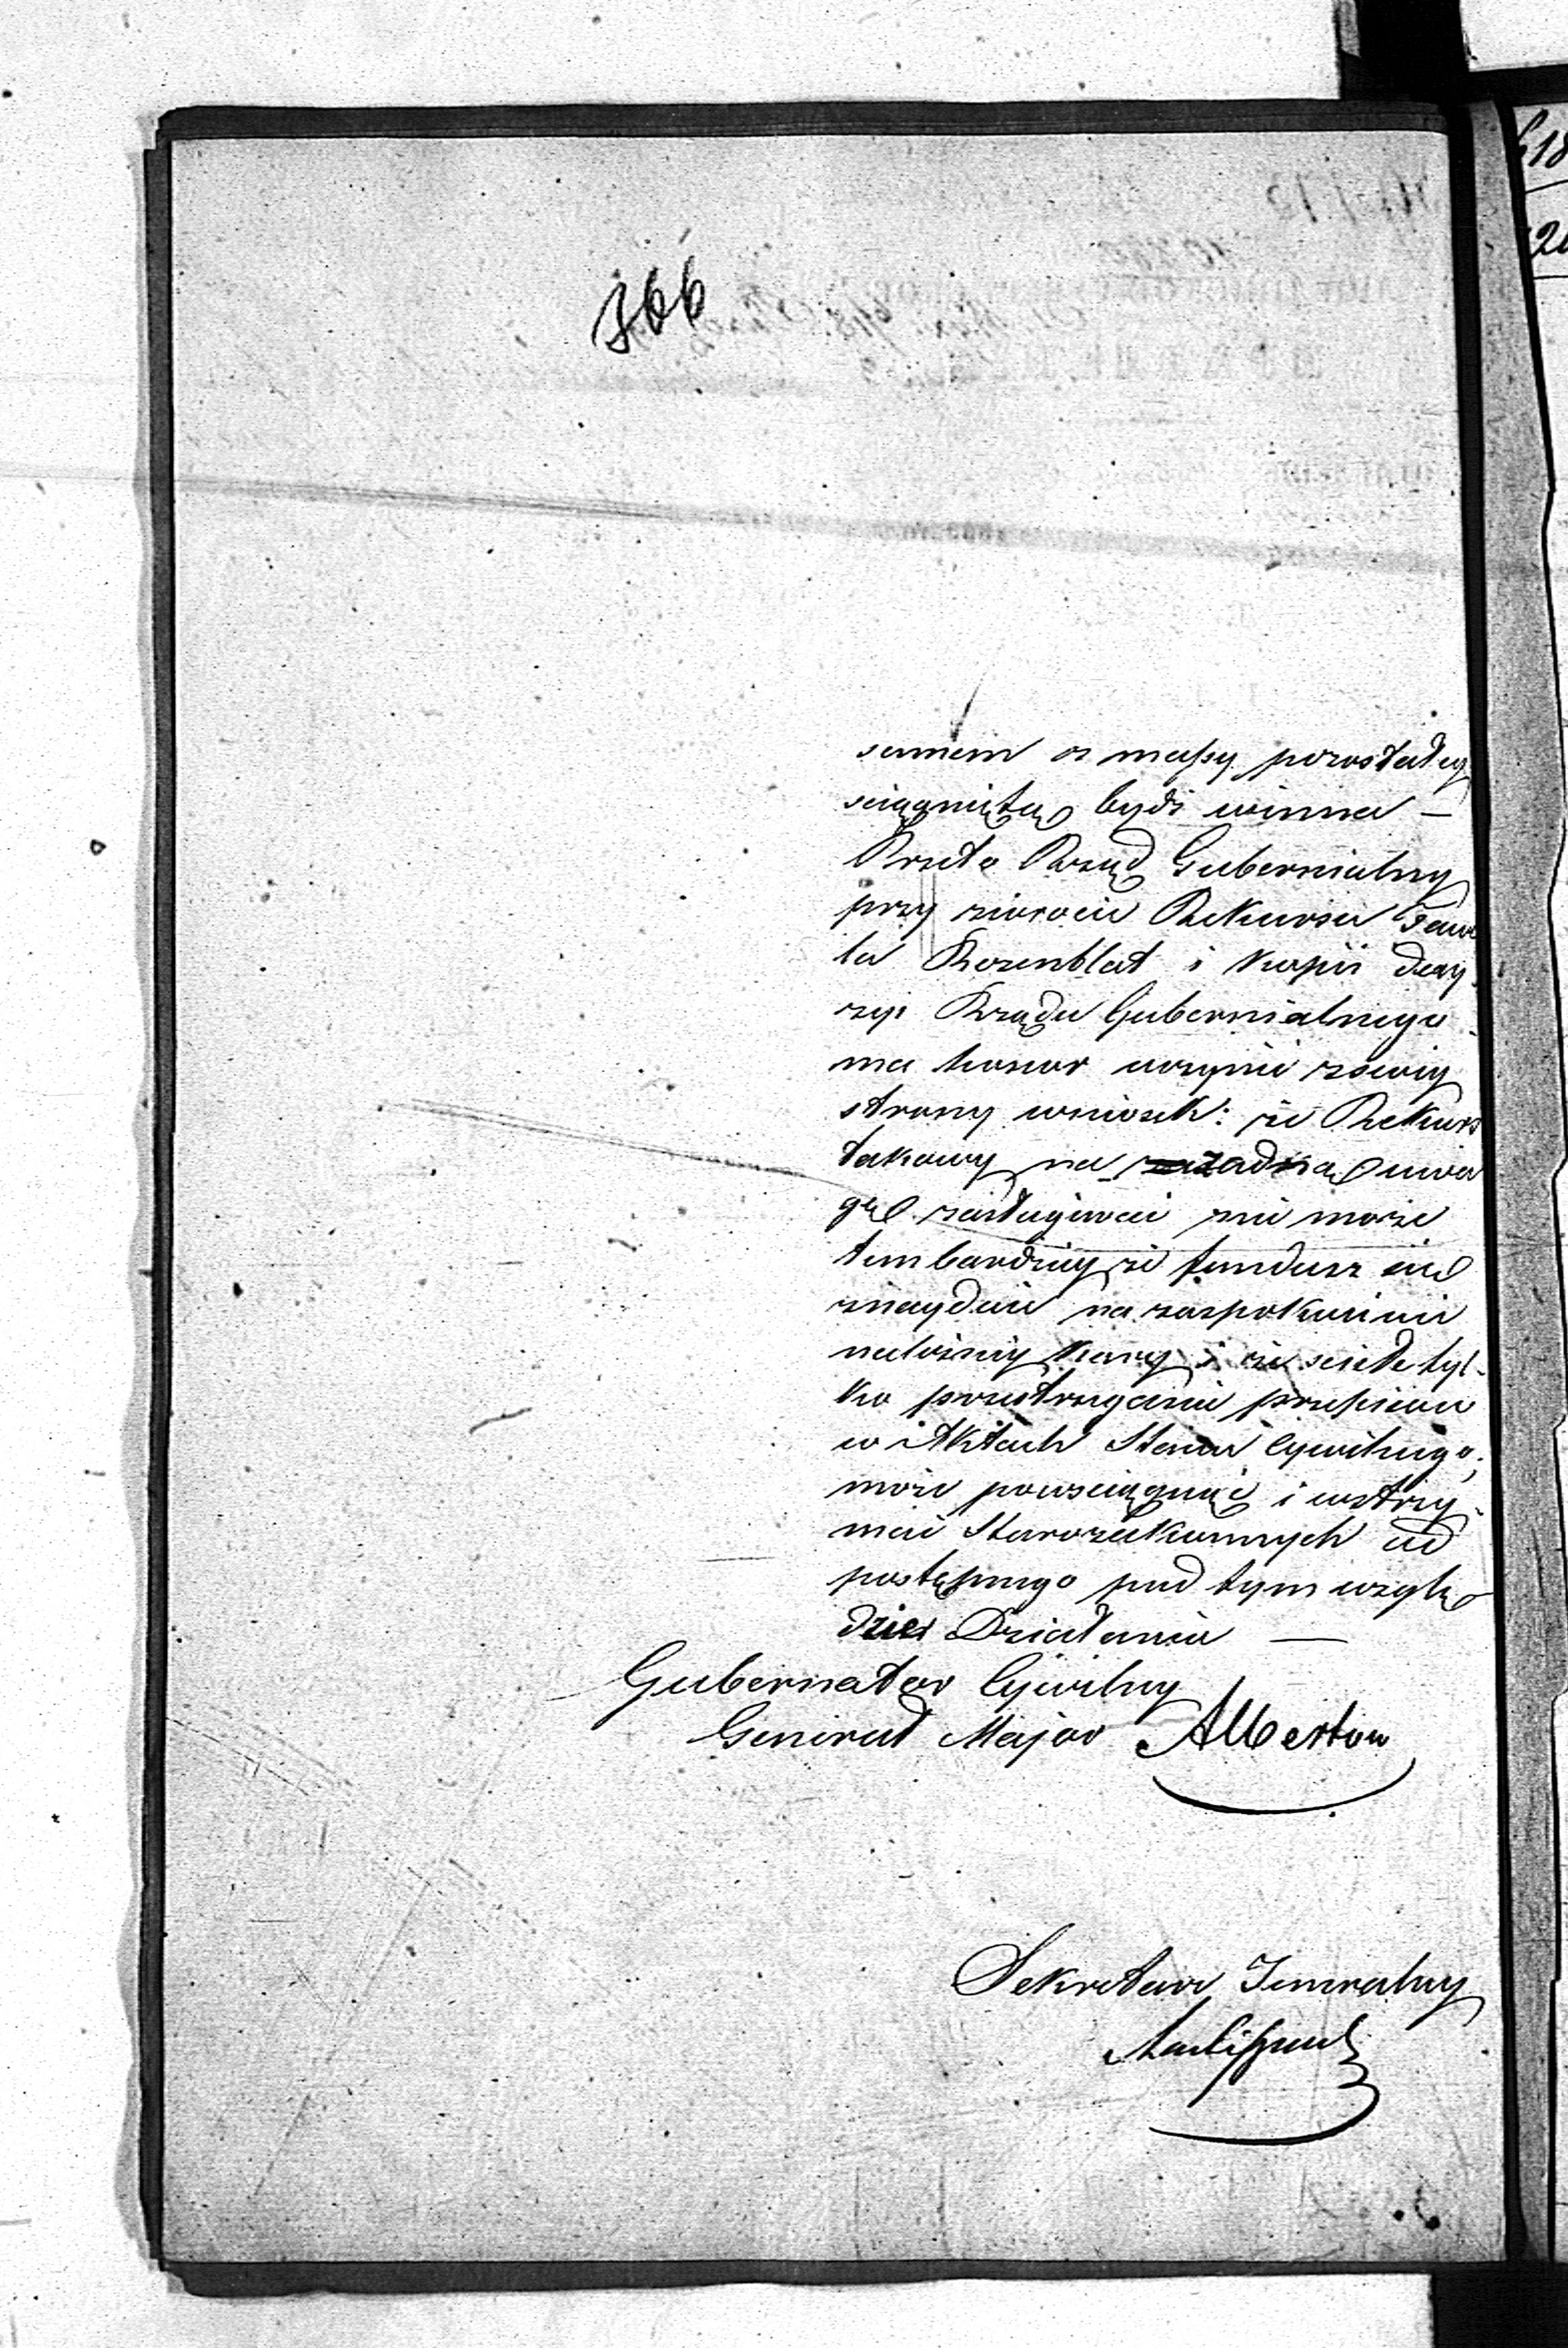 366
samem z massy pozostałey
sciągnięta bydź winna —
Przeto Rząd Gubernialny
przy zwrocie Rekursu Fawe
la Rozenblat i kopii decy
zyi Rządu Gubernialnego
ma honor uczynić zswey
strony wniosek: że Rekurs
takowy na żadną uwa
gę zasługiwać nie może
tembardziey że fundusz się
znayduie na zaspokoienie
należney kary i że scisłe tyl-
ko przestrzeganie przepisow
w Aktach Stanu Cywilnego,
może powsciągnąć i wstrzy-
mać Starozakonnych od
postępnego pod tym wzglę
dzie Działania —
Gubernator Cywilny
Generał Major Albertow
Sekretarz Jeneralny